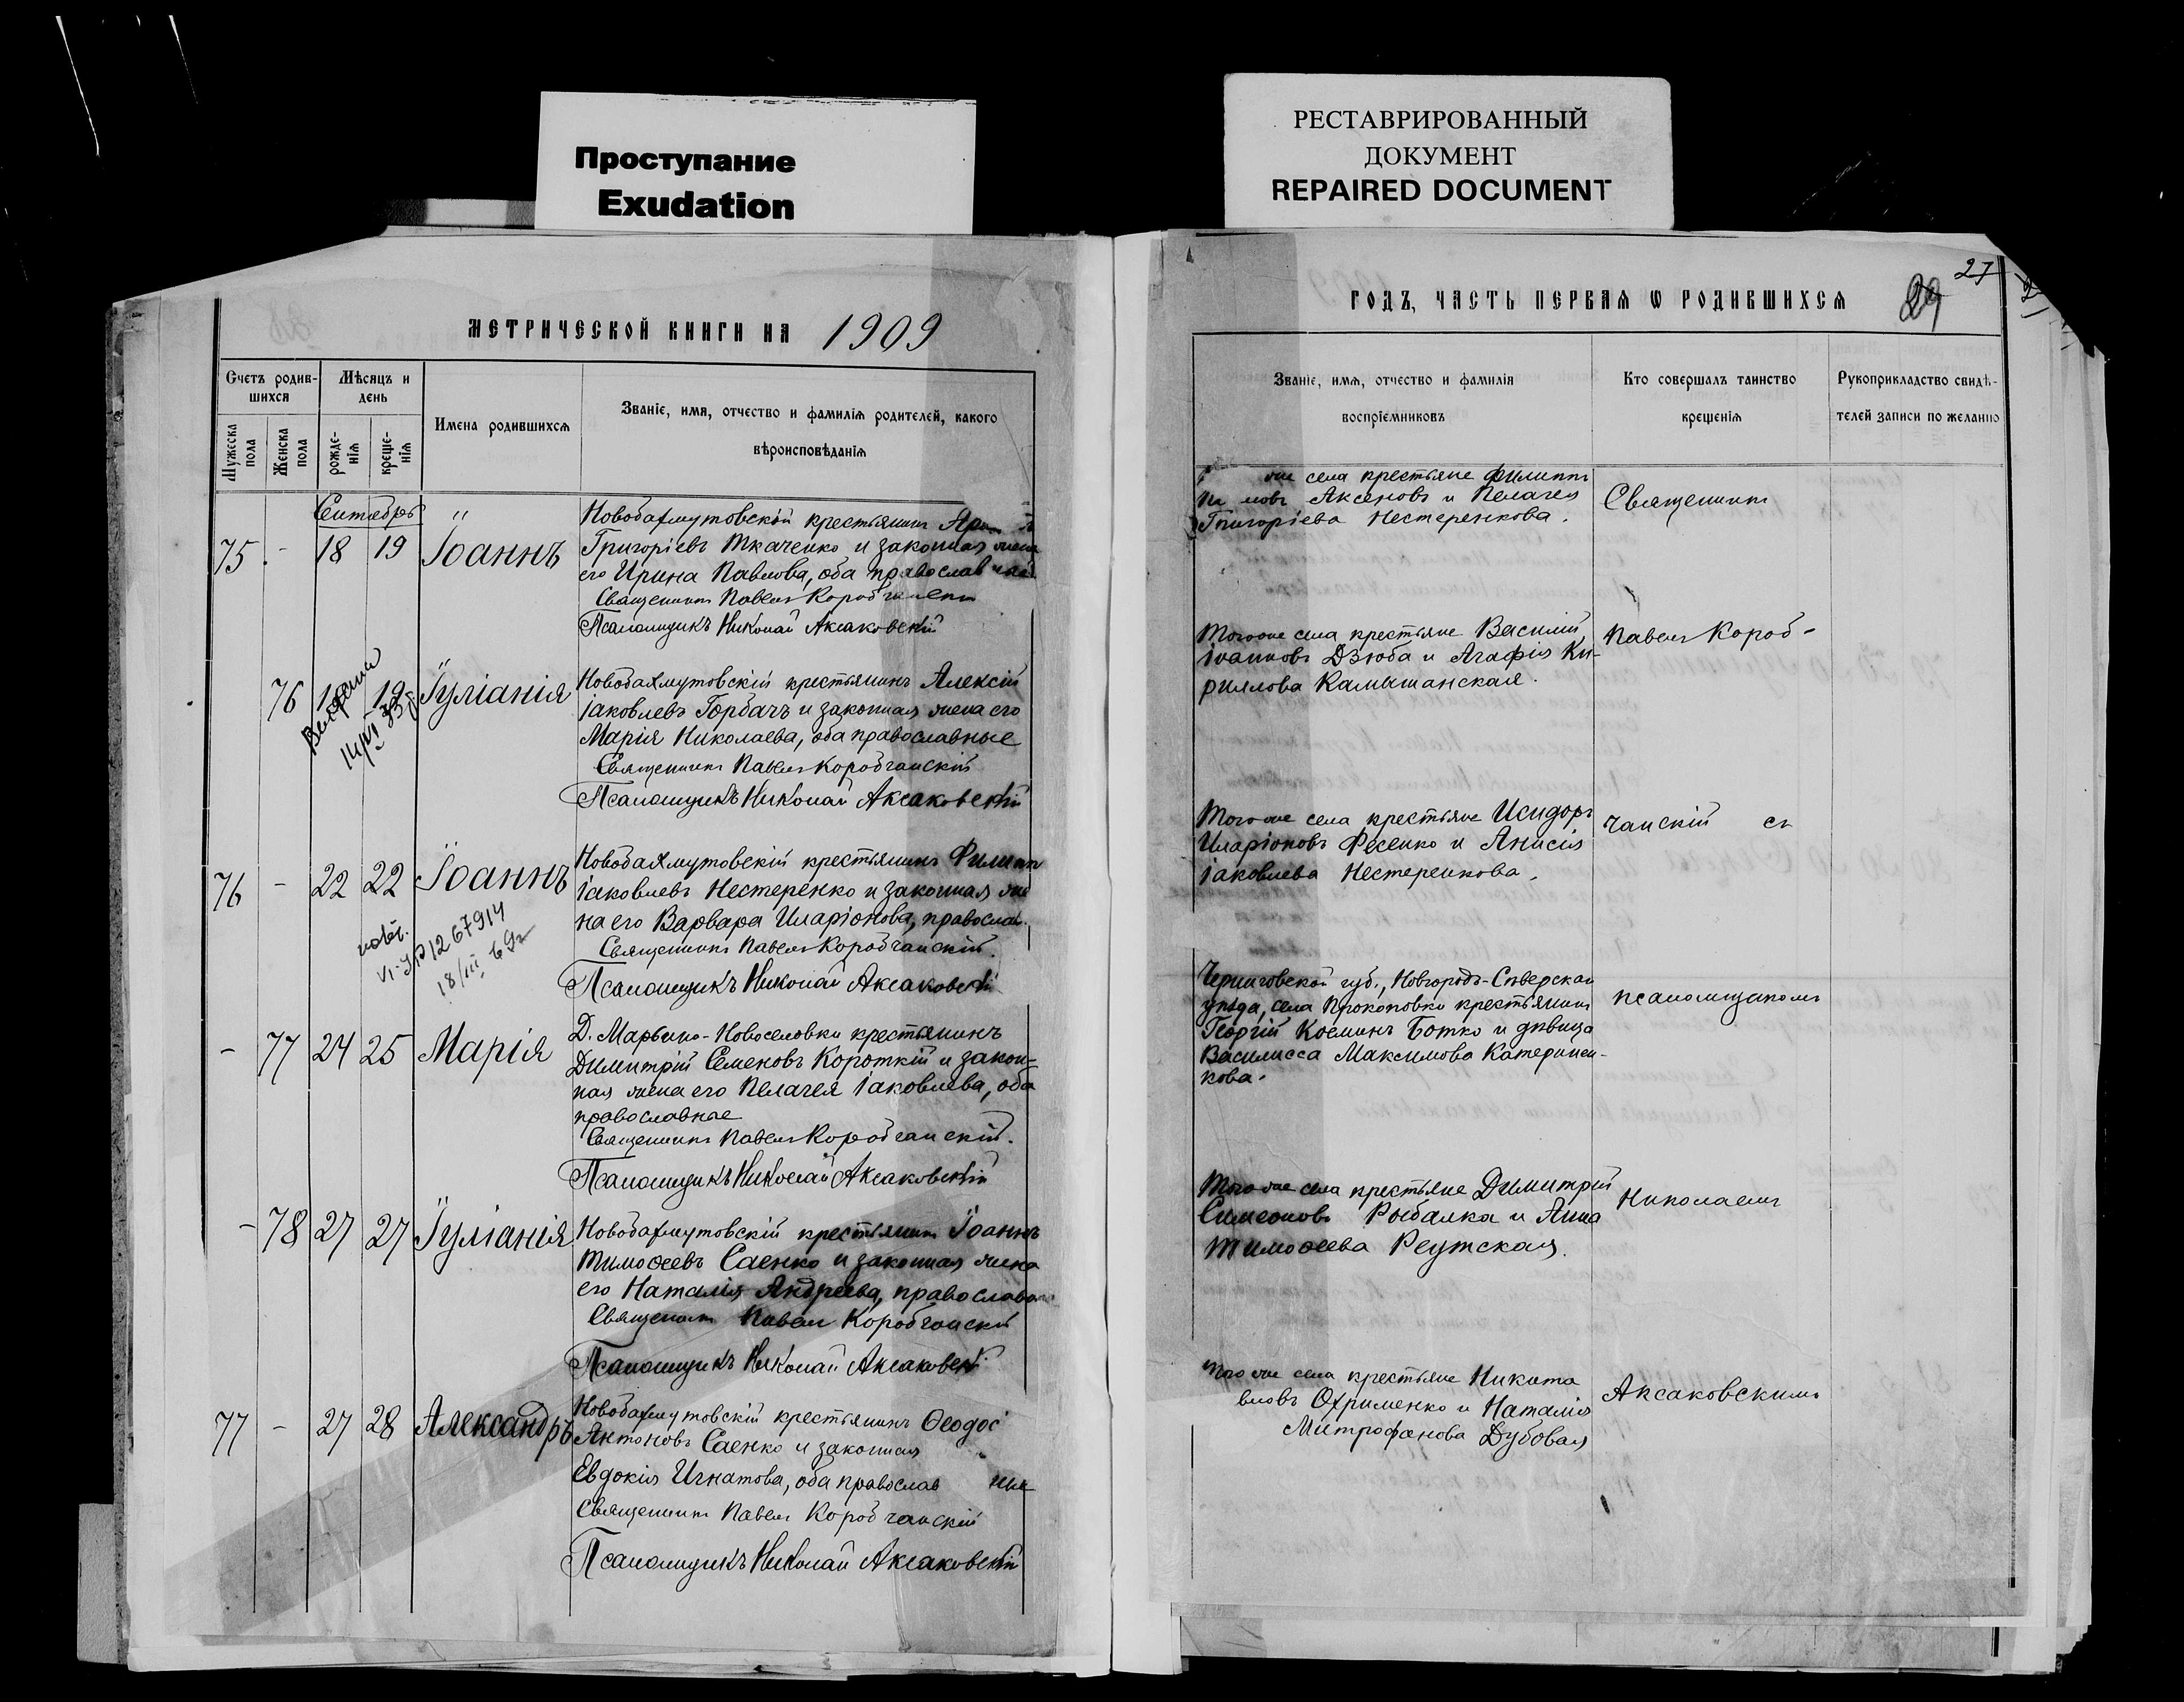 Проступание
Exudation
РЕСТАВРИРОВАННЫЙ
ДОКУМЕНТ
REPAIRED DOCUMENT
МЕТРИЧЕСКОЙ КНИГИ НА 1909
Счетъ родив-
шихся
Мѣсяцъ и
день
Мужеска
пола
Женска
пола
рожде-
нія
креще-
нія
Имена родившихся
Званіе, имя, отчество и фамилія родителей, какого
вѣроисповѣданія
Сентябрь "
75 - 18 19 Іоаннъ
Новобахмутовскій крестьянинъ
Григоріевъ Ткаченко и законная жена
его Ирина Павлова, оба православные
Священникъ Павелъ Коробчанскій
Псаломщикъ Николай Аксаковскій
76 18 19 Іуліанія
14/VI 33
Новобахмутовскій крестьянинъ Алексій
Іаковлевъ Горбачъ и законная жена его
Марія Николаева, оба православные
Священникъ Павелъ Коробчанскій
Псаломщикъ Николай Аксаковскій
76 - 22 22 Іоаннъ
18/III 69г
Новобахмутовскій крестьянинъ Филиппъ
Іаковлевъ Нестеренко и законная же
на его Варвара Иларіонова, православ.
Священникъ Павелъ Коробчанскій.
Псаломщикъ Николай Аксаковскій
- 77 24 25 Марія
Д. Марьино-Новоселовки крестьянинъ
Димитрій Семеновъ Короткій и закон-
ная жена его Пелагея Іаковлева, оба
православные
Священникъ Павелъ Коробчанскій.
Псаломщикъ Николай Аксаковскій
- 78 27 27 Іуліанія
Новобахмутовскій крестьянинъ Іоаннъ
Тимоѳеевъ Саенко и законная жена
его Наталія Андреева, православн
Священникъ Павелъ Коробчанскій
Псаломщикъ Николай Аксаковскій
77 - 27 28 Александръ
Новобахмутовскій крестьянинъ Ѳеодосі
Антоновъ Саенко и законная
Евдокія Игнатова, оба православ ные
Священникъ Павелъ Коробчанскій
Псаломщикъ Николай Аксаковскій
27
29
ГОДЪ, ЧАСТЬ ПЕРВАЯ Ѡ РОДИВШИХСЯ
Званіе, имя, отчество и фамилія
воспріемниковъ
Кто совершалъ таинство
крещенія
Рукоприкладство свидѣ-
телей записи по желанію
же села крестьяне Филиппъ
Аксеновъ и Пелагея
Григоріева Нестеренкова.
Священникъ
Тогоже села крестьяне Василій
Іоанновъ Дзюба и Агафія Ки-
риллова Камышанская.
Павелъ Короб-
Тогоже села крестьяне Исидоръ
Иларіоновъ Фесенко и Анисія
Іаковлева Нестеренкова.
чанскій съ
Черниговской губ., Новгородъ-Сѣверскаго
уѣзда, села Прокоповки крестьянинъ
Георгій Косминъ Ботко и дѣвица
Василисса Максимова Катеринен-
кова.
псаломщикомъ
Тогоже села крестьяне Димитрій
Симеоновъ Рыбалка и Анна
Тимоѳеева Реутская.
Николаемъ
Тогоже села крестьяне Никита
Охрименко и Наталія
Митрофанова Дубовая
Аксаковскимъ